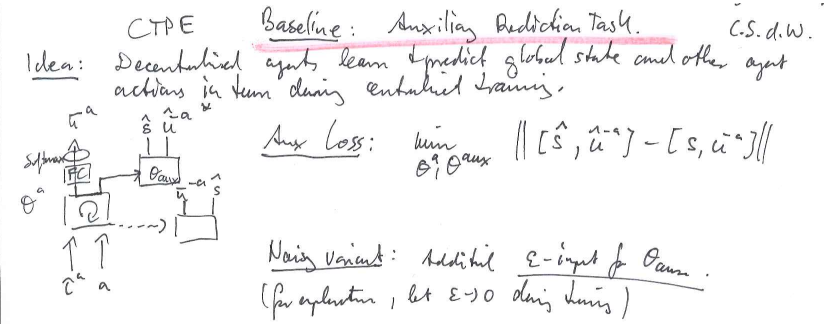 CTPE Baseline: Auxiliary Prediction Task. C.S.d.W.
Idea: Decentralised agents learn to predict global state and other agent
actions in turn during centralised training.
Aux Loss: min θᵃ, θᵃᵘˣ || [ŝ, û⁻ᵃ] - [s, u⁻ᵃ] ||
ŝ û⁻ᵃ
softmax
FC
θaux
θᵃ
ŝ
τᵃ a
Noisy variant: Additional ε-input for θaux.
(for exploration, let ε→0 during training)